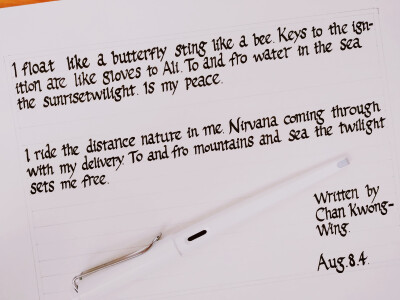 I float like a butterfly sting like a bee. Keys to the ign-
ition are like gloves to Ali. To and fro water in the sea
the sunrisetwilight. Is my peace.
I ride the distance nature in me. Nirvana coming through
with my delivery. To and fro mountains and sea the twilight
sets me free.
Written by
Chan Kwong-
Wing.
Aug.8.4.